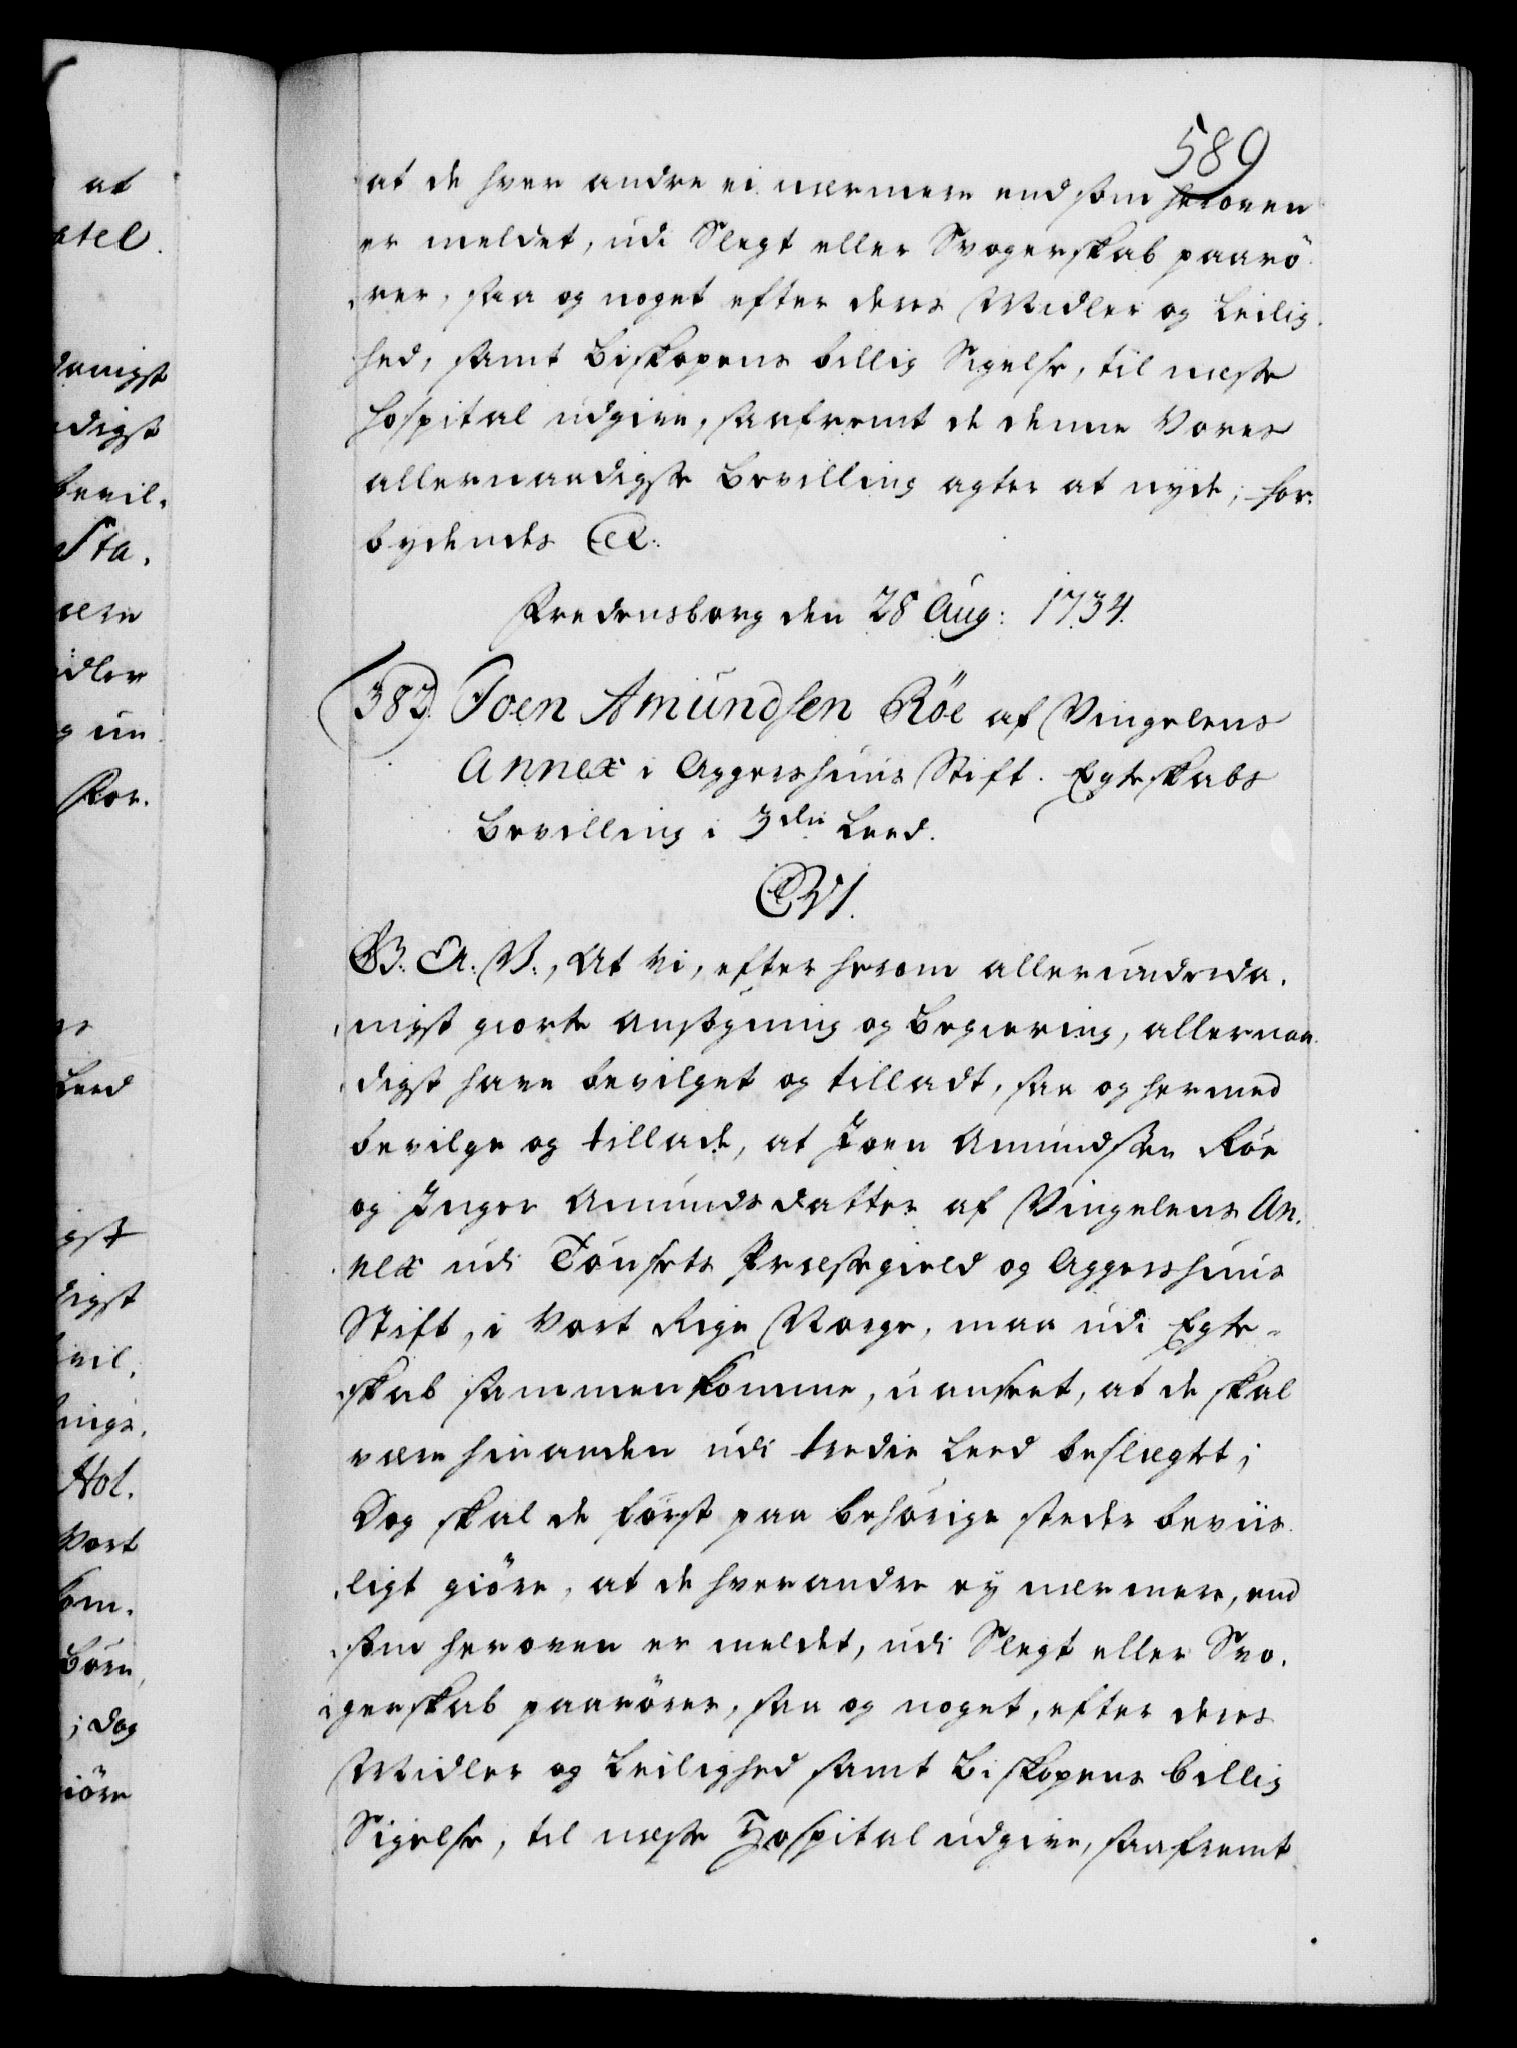 589
at de hver andre ei nærmere end som heroven
er meldet, udi Slegt eller Svogerskab paarö-
rer, saa og noget efter deres Midler og Leilig-
hed, samt Biskopens billig Sigelse, til næste
Hospital udgive, saafremt de denne Vores
allernaadigste Bevilling agter at nyde; For-
bydendes &c:
Fredensborg den 28 Aug: 1734.
383. Joen Amundsen Röe af Vingelens
Annex i Aggershuus Stift. Egteskabs
Bevilling i 3die Leed.
C VI.
G. A. V., At Vi, efter herom allerunderda-
nigst giorte Ansögning og Begiering, allernaa-
digst have bevilget og tilladt, saa og hermed
bevilge og tillade, at Joen Amundssen Röe
og Inger Amundsdatter af Vingelens An-
nex udi Tönsets Præstegield og Aggershuus
Stift, i Vort Rige Norge, maa udi Egte-
skab sammenkomme, uanseet, at de skal
være hinanden udi tredie Leed beslægtet;
Dog skal de först paa behörige steder beviis-
ligt giöre, at de hverandre ey nærmere, end
som heroven er meldet, udi Slegt eller Svo-
gerskab paarörer, saa og noget, efter deres
Midler og Leilighed samt Biskopens billig
Sigelse, til næste Hospital udgive, saafremt
at
danigst
digst
bevil-
Sta-
dler
g un
For-
Leed
igst
digst
vil-
Hol-
Vort
kom-
Börn,
; Dog
iöre